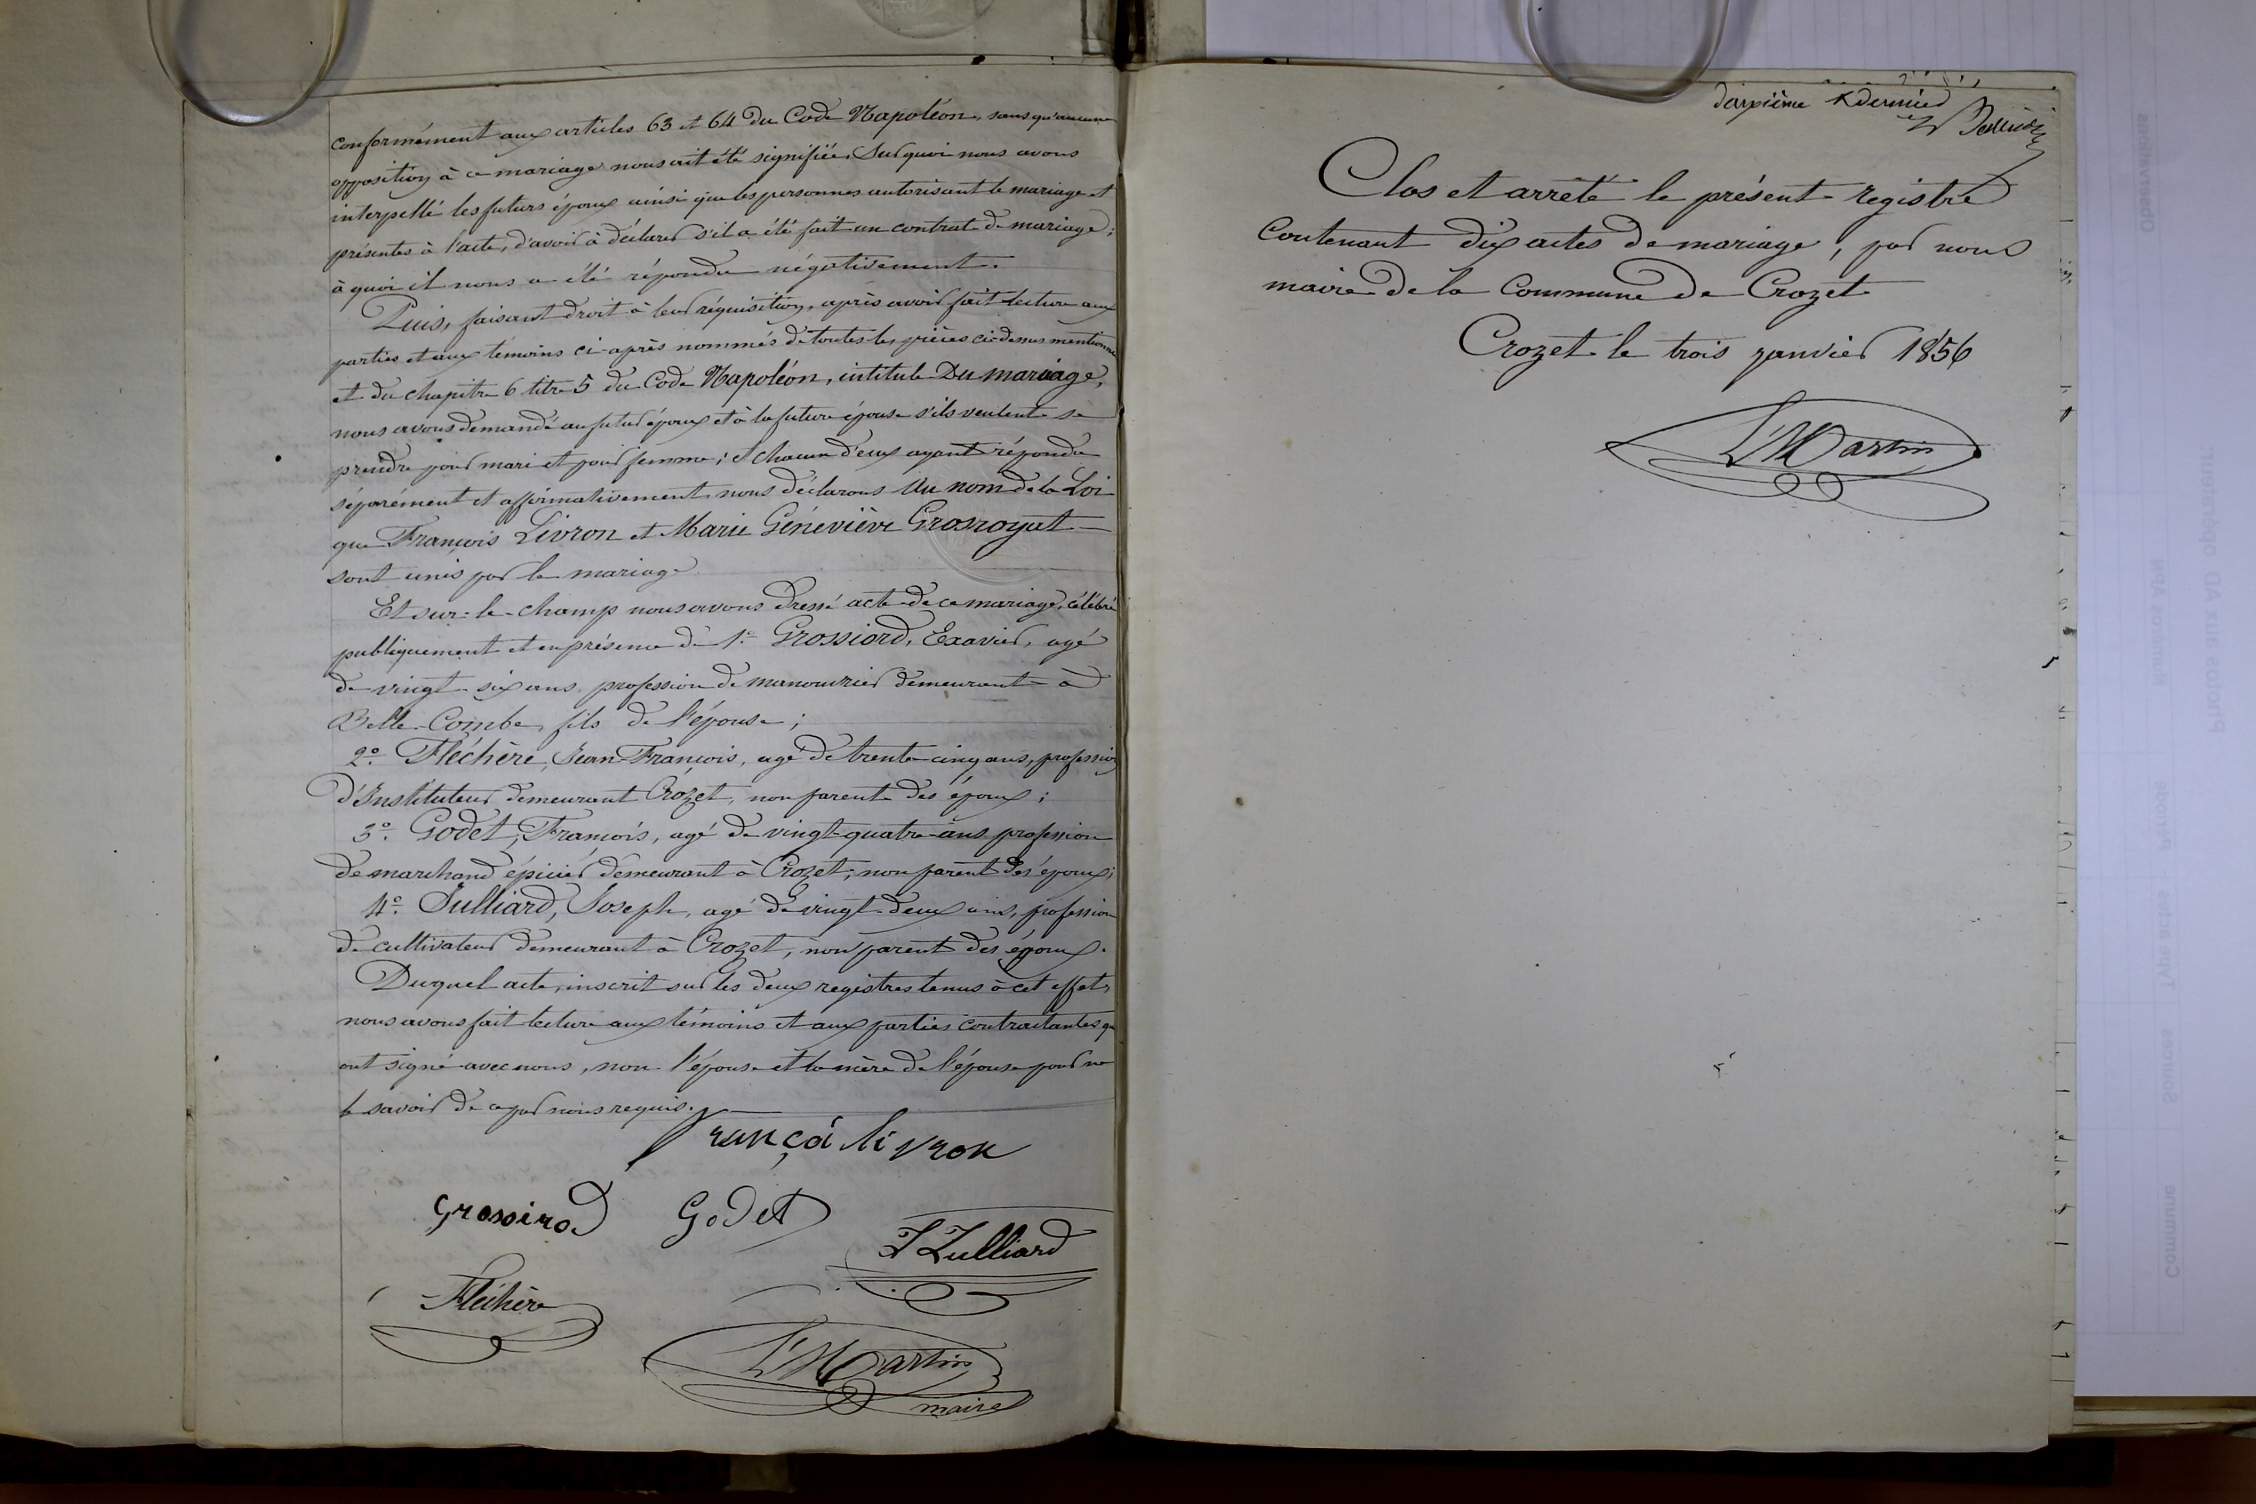 conformément aux articles 63 et 64 du Code Napoléon, sans qu'aucune
opposition à ce mariage nous ait été signifiée. Sur quoi nous avons
interpellé les futurs époux ainsi que les personnes autorisant le mariage et
présentes à l'acte, d'avoir à déclarer s'il a été fait un contrat de mariage ;
à quoi il nous a été répondu négativement.
Puis, faisant droit à leur réquisition, après avoir fait lecture aux
parties et aux témoins ci-après nommés de toutes les pièces ci-dessus mentionnées
et du chapitre 6 titre 5 du Code Napoléon, intitulé Du mariage,
nous avons demandé au futur époux et à la future épouse s'ils veulent se
prendre pour mari et pour femme ; et chacun d'eux ayant répondu
séparément et affirmativement nous déclarons Au nom de la Loi
que François Livron et Marie Géneviève Grosroyat
sont unis par le mariage
Et sur-le-champ nous avons dressé acte de ce mariage, célébré
publiquement et en présence de 1.° Grossiord, Exavier, agé
de vingt-six ans, profession de manouvrier demeurant à
Belle-Combe, fils de l'épouse ;
2.° Fléchère, Jean François, agé de trente cinq ans, profession
d'Instituteur demeurant Crozet, non parent des époux ;
3.° Godet, François, agé de vingt-quatre ans profession
de marchand épicier demeurant à Crozet, non parent des époux ;
4.° Julliard, Joseph, agé de vingt-deux ans, profession
de cultivateur demeurant à Crozet, non parent des époux.
Duquel acte, inscrit sur les deux registres tenus à cet effet,
nous avons fait lecture aux témoins et aux parties contractantes qui
ont signé avec nous, non l'épouse et la mère de l'épouse pour ne
le savoir de ce par nous requis.
françoi livron
Grossirod Godet
J Julliard
Fléchère
L' Martin
maire
douzième & dernier
Clos et arrêté le présent registre
contenant dix actes de mariage, par nous
maire de la Commune de Crozet
Crozet le trois janvier 1856
L' Martin
Observations
Photos aux AD Opérateur:
Commune
Sources
Type acte
Période